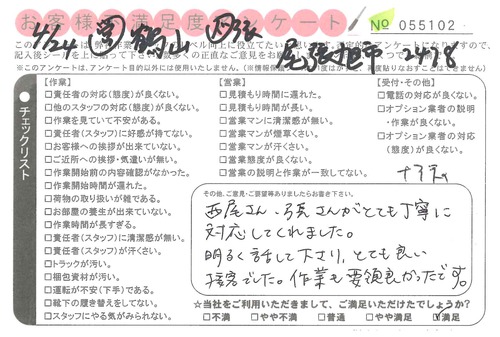 お客様満足度アンケート
No 055102
4/24
尾張旭市 2418
※このアンケートは、アンケート目的以外には使用いたしません。
チェックリスト
【作業】
□責任者の対応(態度)が良くない。
□他のスタッフの対応(態度)が良くない。
□作業を見ていて不安がある。
□責任者(スタッフ)に好感が持てない。
□お客様への挨拶が出来ていない。
□ご近所への挨拶・気遣いが無い。
□作業開始前の内容確認がなかった。
□作業開始時間が遅れた。
□荷物の取り扱いが雑である。
□お部屋の養生が出来ていない。
□作業時間が長すぎる。
□責任者(スタッフ)に清潔感が無い。
□責任者(スタッフ)が汗くさい。
□トラックが汚い。
□梱包資材が汚い。
□運転が不安(下手)である。
□靴下の履き替えをしてない。
□スタッフにやる気がみられない。
【営業】
□見積もり時間に遅れた。
□見積もり時間が長い。
□営業マンに清潔感が無い。
□営業マンが煙草くさい。
□営業マンが汗くさい。
□営業態度が良くない。
□営業の説明と作業が一致してない。
【受付・その他】
□電話の対応が良くない。
□オプション業者の説明
・作業が良くない。
□オプション業者の対応
(態度)が良くない。
その他、ご意見・ご要望等ありましたらお書き下さい。
西尾さん・張さんがとても丁寧に
対応してくれました。
明るく話して下さり、とても良い
接客でした。作業も要領良かったです。
☆当社をご利用いただきまして、ご満足いただけたでしょうか?
□不満 □やや不満 □普通 □やや満足 ☑満足